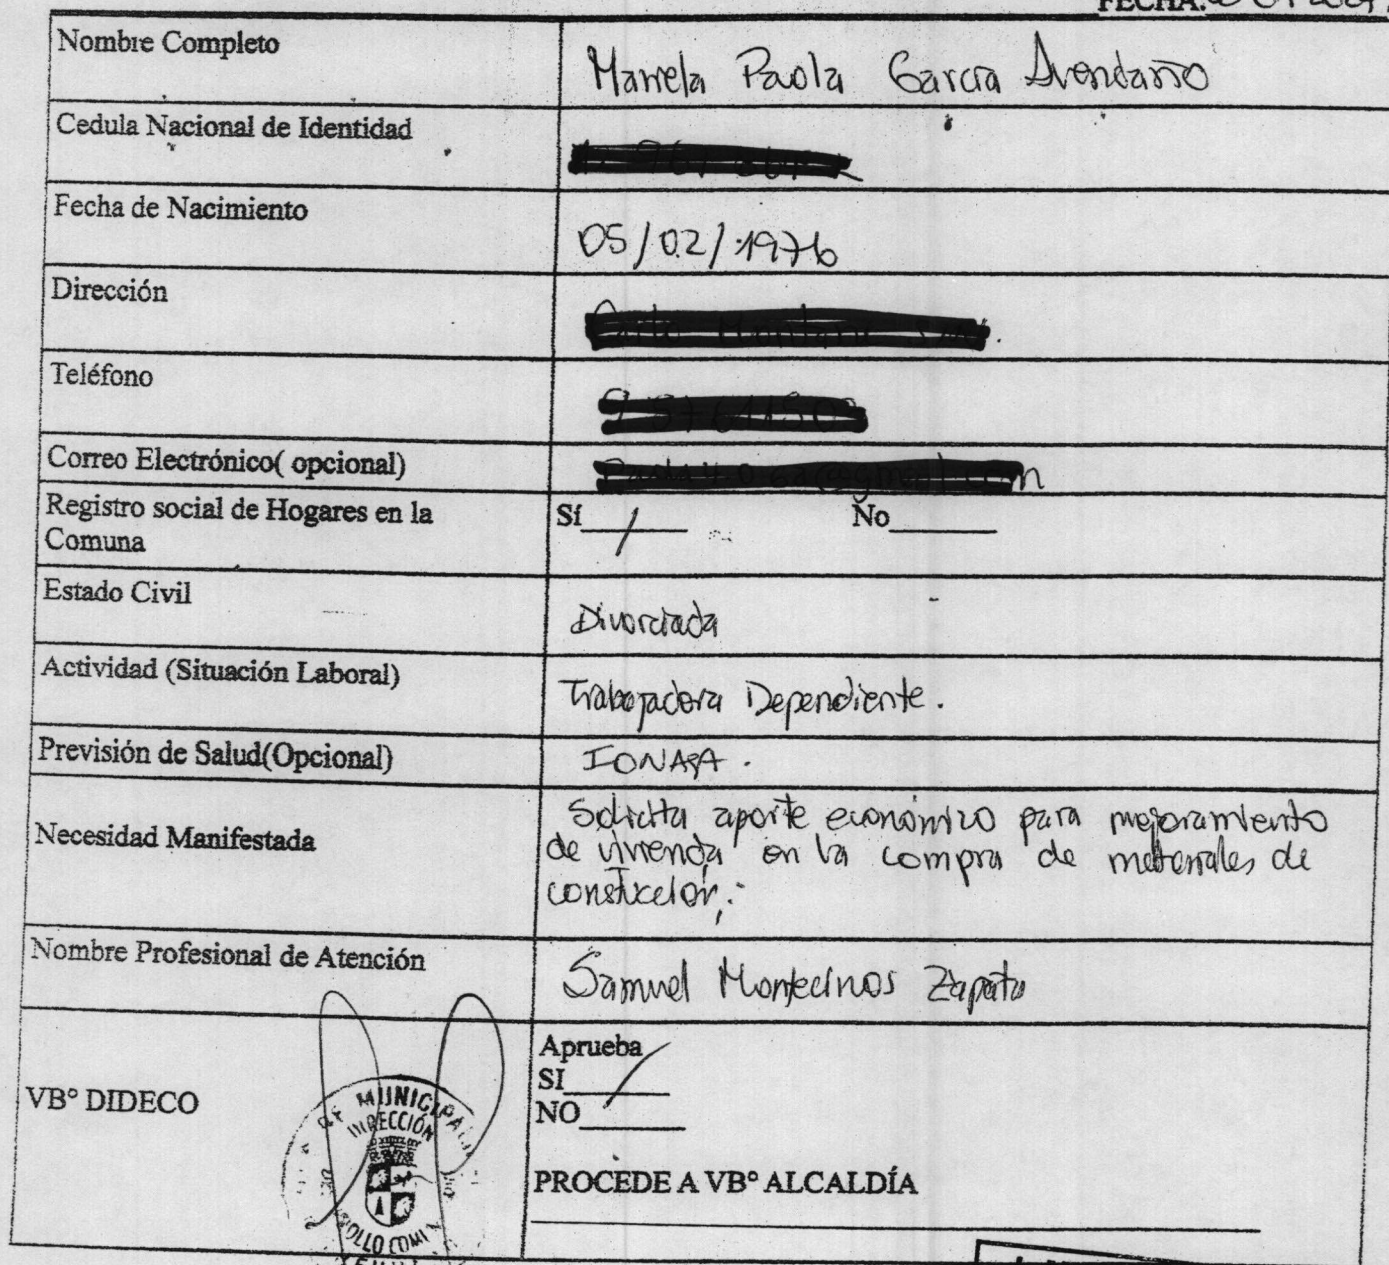 FECHA:
Nombre Completo
Marcela Paola García Avendaño
Cedula Nacional de Identidad
Fecha de Nacimiento
05/02/1976
Dirección
Teléfono
Correo Electrónico( opcional)
Registro social de Hogares en la
Comuna
Sí / No
Estado Civil
Divorciada
Actividad (Situación Laboral)
Trabajadora Dependiente.
Previsión de Salud(Opcional)
FONASA.
Necesidad Manifestada
Solicita aporte económico para mejoramiento
de vivienda en la compra de materiales de
Nombre Profesional de Atención
Samuel Montecinos Zapata
VBº DIDECO
MUNICIPAL
DIRECCIÓN
Aprueba
SI /
NO
PROCEDE A VBº ALCALDÍA